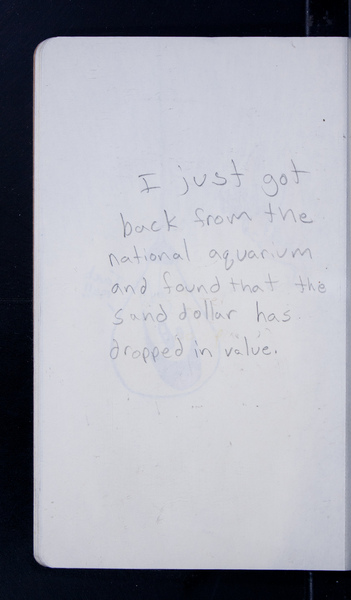 I just got
back from the
national aquarium
and found that the
sand dollar has
dropped in value.